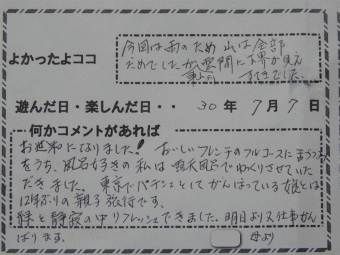 よかったよココ
今回は雨のため 山は全部
だめでしたが、雲間に下界が見え
すてきでした。
遊んだ日・楽しんだ日・・ 30 年 7 月 7 日
何かコメントがあれば
お世話になりました! おいしいフレンチのフルコースに
をうち、風呂好きの私は露天風呂でゆっくりさせていた
だきました。東京でパテシエとしてがんばっている娘とは
12年ぶりの親子旅行です。
緑と静寂の中リフレッシュできました。明日より又仕事がん
ばります。
母より